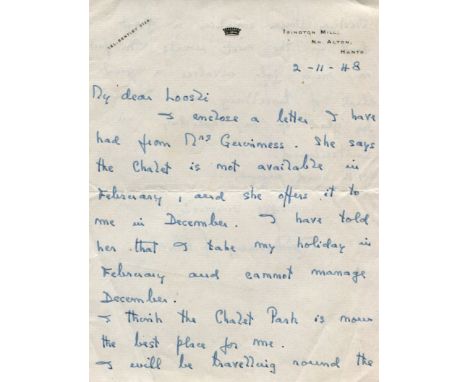 TEL. BENTLEY
ISINGTON MILL,
NR. ALTON,
HANTS.
2-11-48
My dear Looski
I enclose a letter I have
had from Mrs
She says
the Chalet is not available in
February, and she offers it to
me in December. I have told
her that I take my holiday in
February and cannot manage
December.
I think the Chalet Park is now
the best place for me.
I will be travelling round the